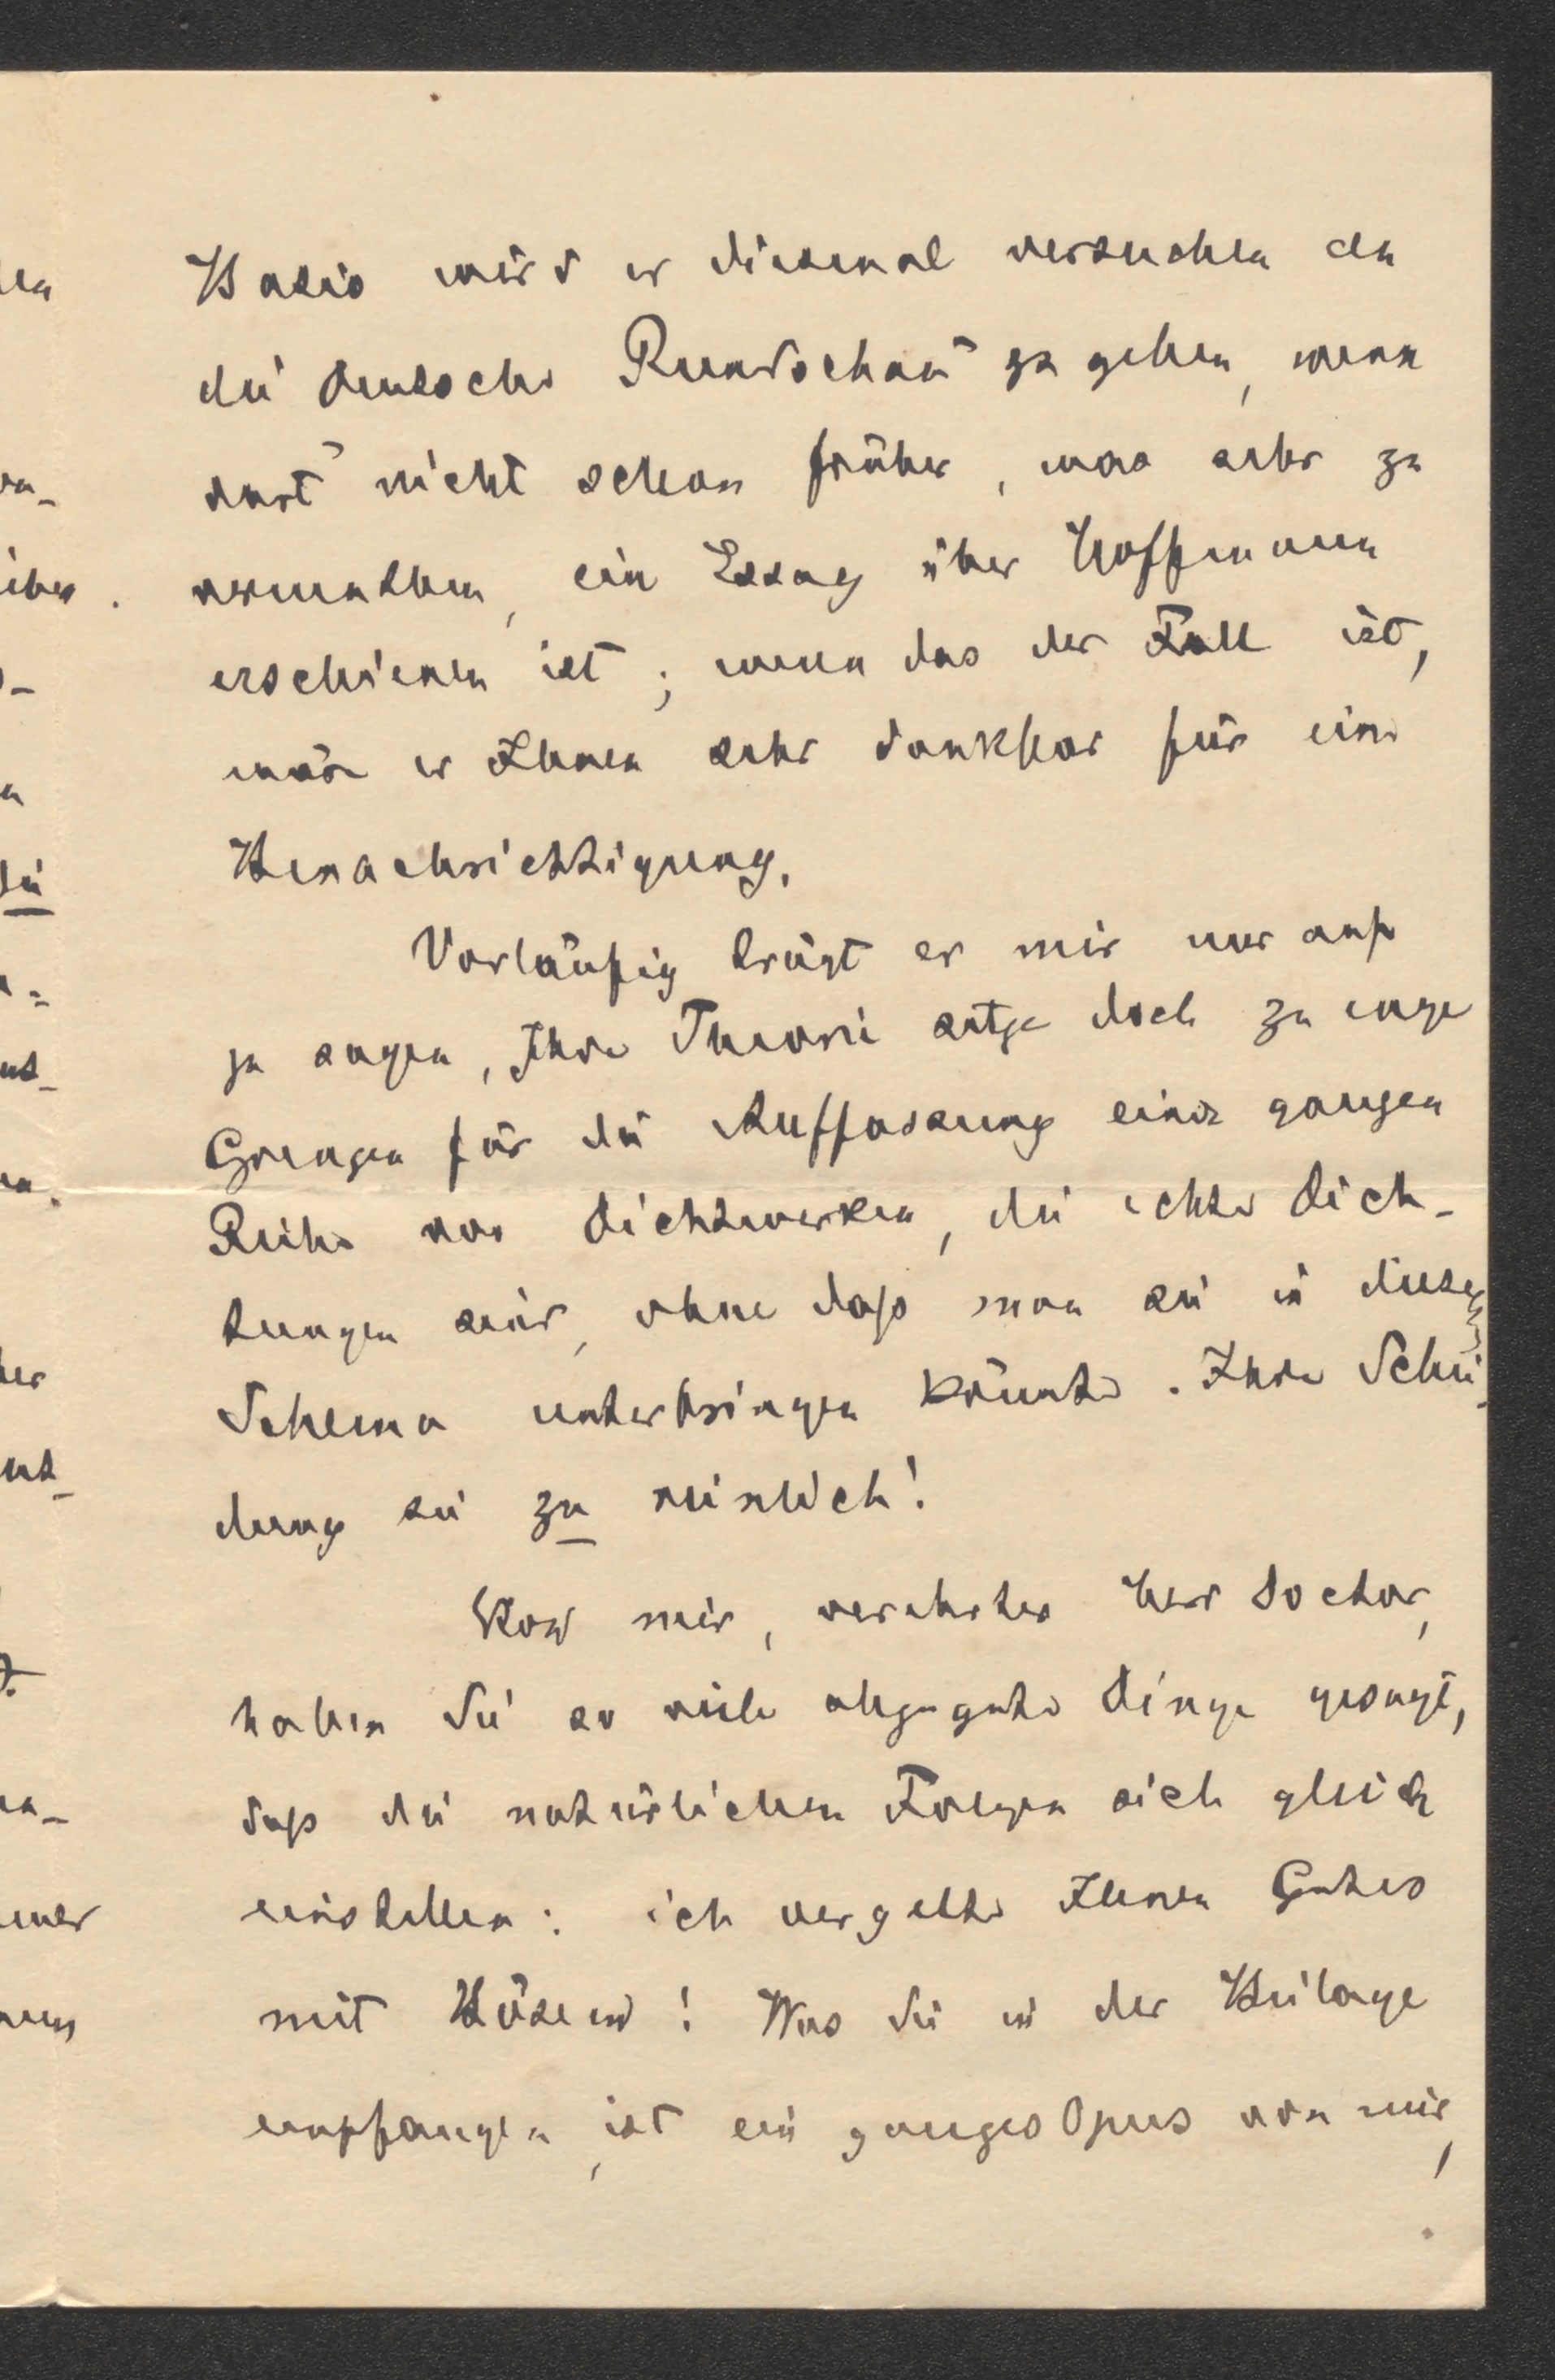 Basis wird er diesmal versuchen an
die deutsche Rundschau zu gehen, wenn
dort nicht schon früher, was sehr zu
vermuthen, ein Essay über Hoffmann
erschienen ist; wenn das der Fall ist,
wäre er Ihnen sehr dankbar für eine
Benachrichtigung.
Vorläufig trägt er mir nur auf
zu sagen, Ihre Theorie setze doch zu enge
Grenzen für die Auffassung einer ganzen
Reihe von Dichtwerken, die echte Dich-
tungen sind, ohne daß man sie in dieses
Schema unterbringen könnte. Ihre Schei-
dung sei zu reinlich!
Von mir, verehrter Herr Doctor,
haben Sie so viele allzugute Dinge gesagt,
daß die natürlichen Folgen sich gleich
einstellen: ich vergelte Ihnen Gutes
mit Bösem! Was Sie in der Beilage
empfangen, ist ein ganzes Opus von mir,